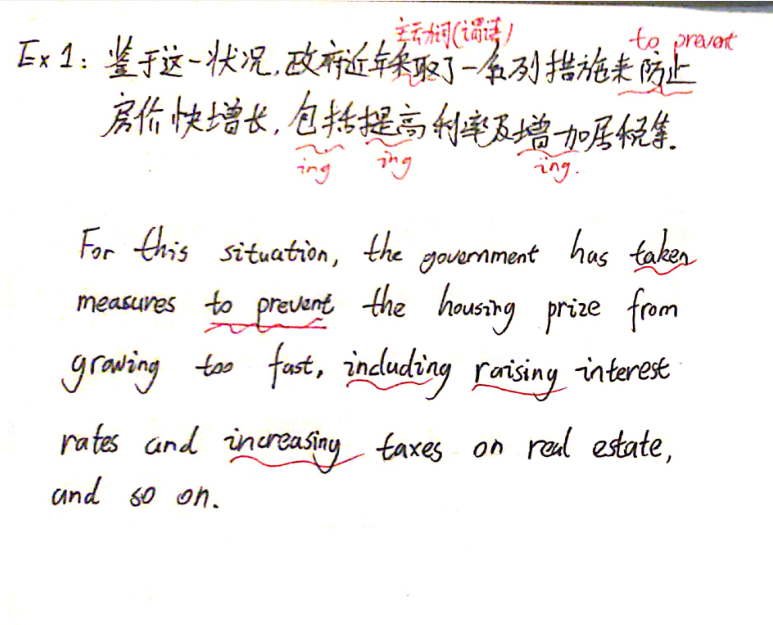 主动词(谓语)
to prevent
Ex 1: 鉴于这一状况,政府近年采取了一系列措施来防止
房价快增长,包括提高利率及增加房税等.
ing ing ing.
For this situation, the government has taken
measures to prevent the housing prize from
growing too fast, including raising interest
rates and increasing taxes on real estate,
and so on.